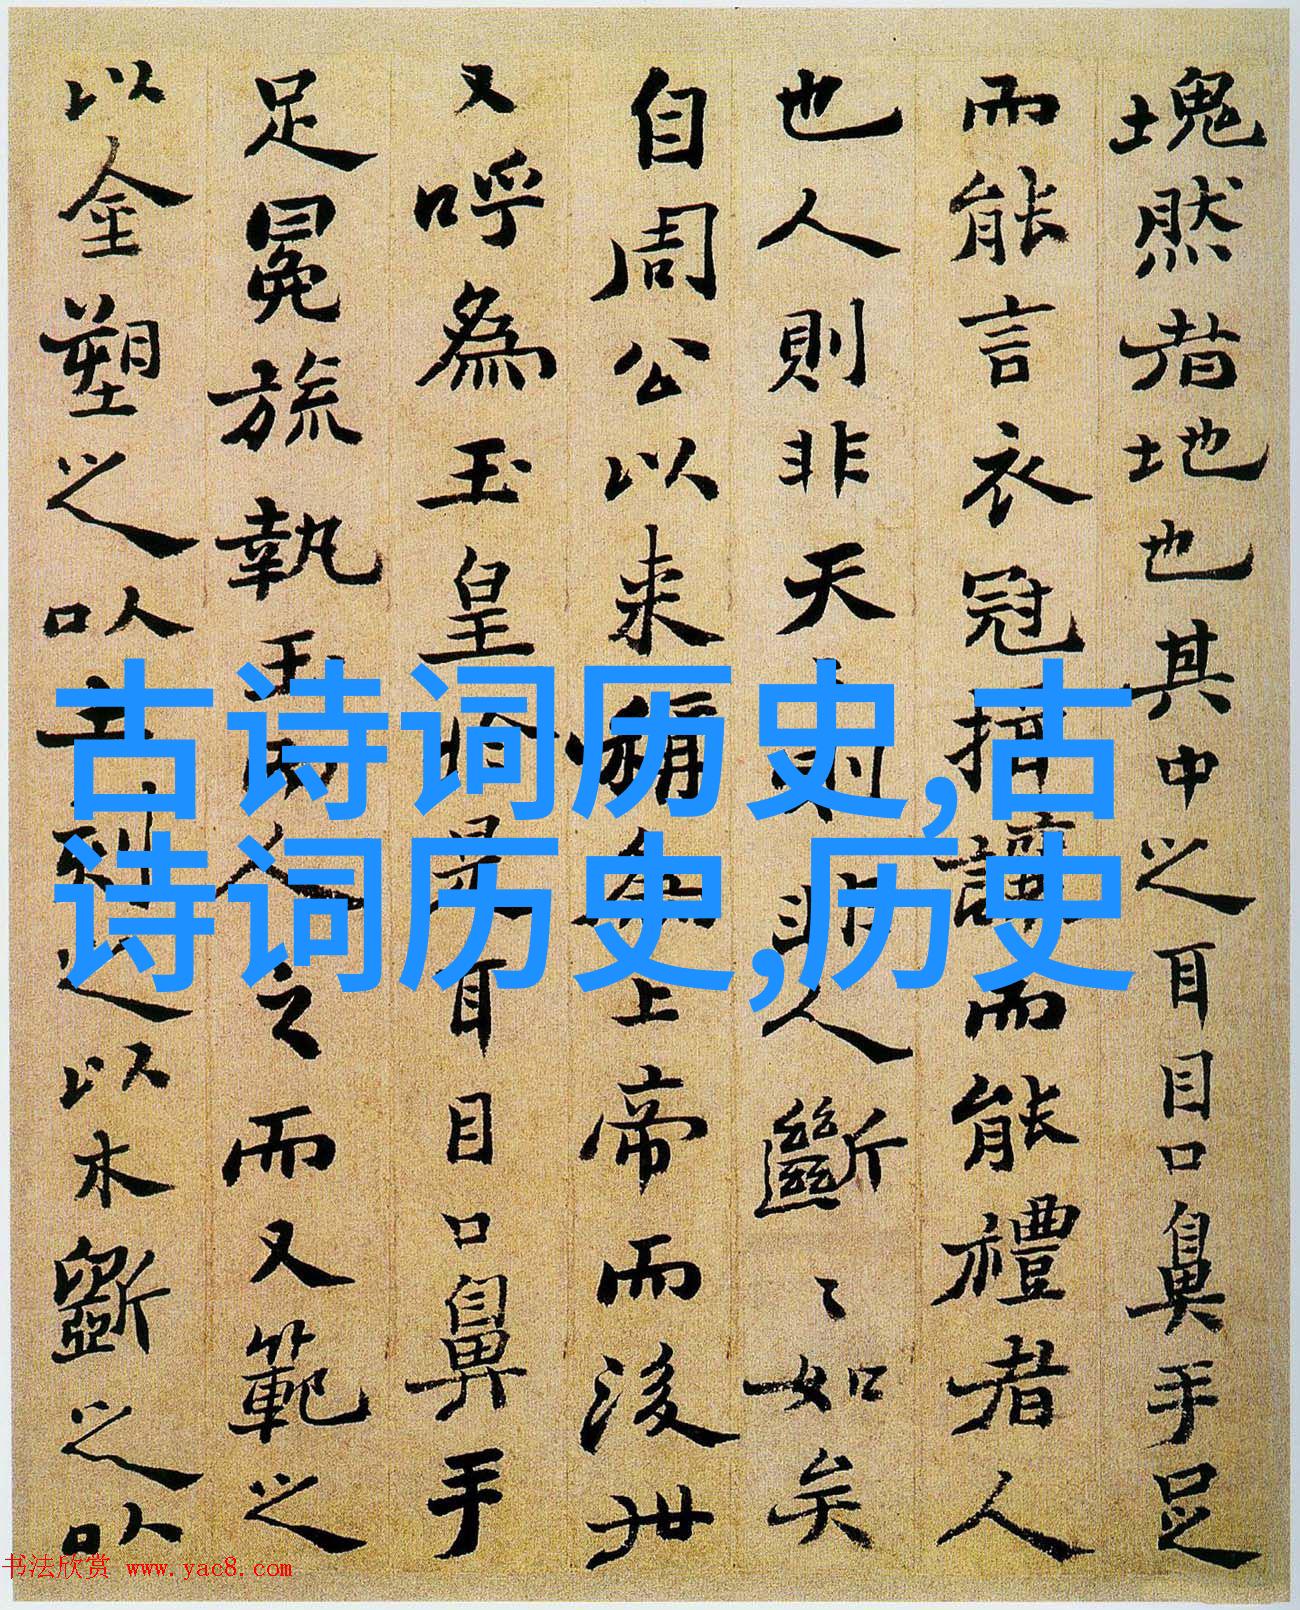 塊然者地也其中之耳目口鼻手足
而能言衣冠揖讓而能禮者人
也人則非天則非人斷〻如矣
自周公以來稱為上帝而後世
又呼為玉皇於是耳目口鼻手
足冕旒執玉而人之而又範之
以金塑之以土刻之以木斲之以
古诗词历史,古
诗词历史,历史
书法欣赏 www.yac8.com